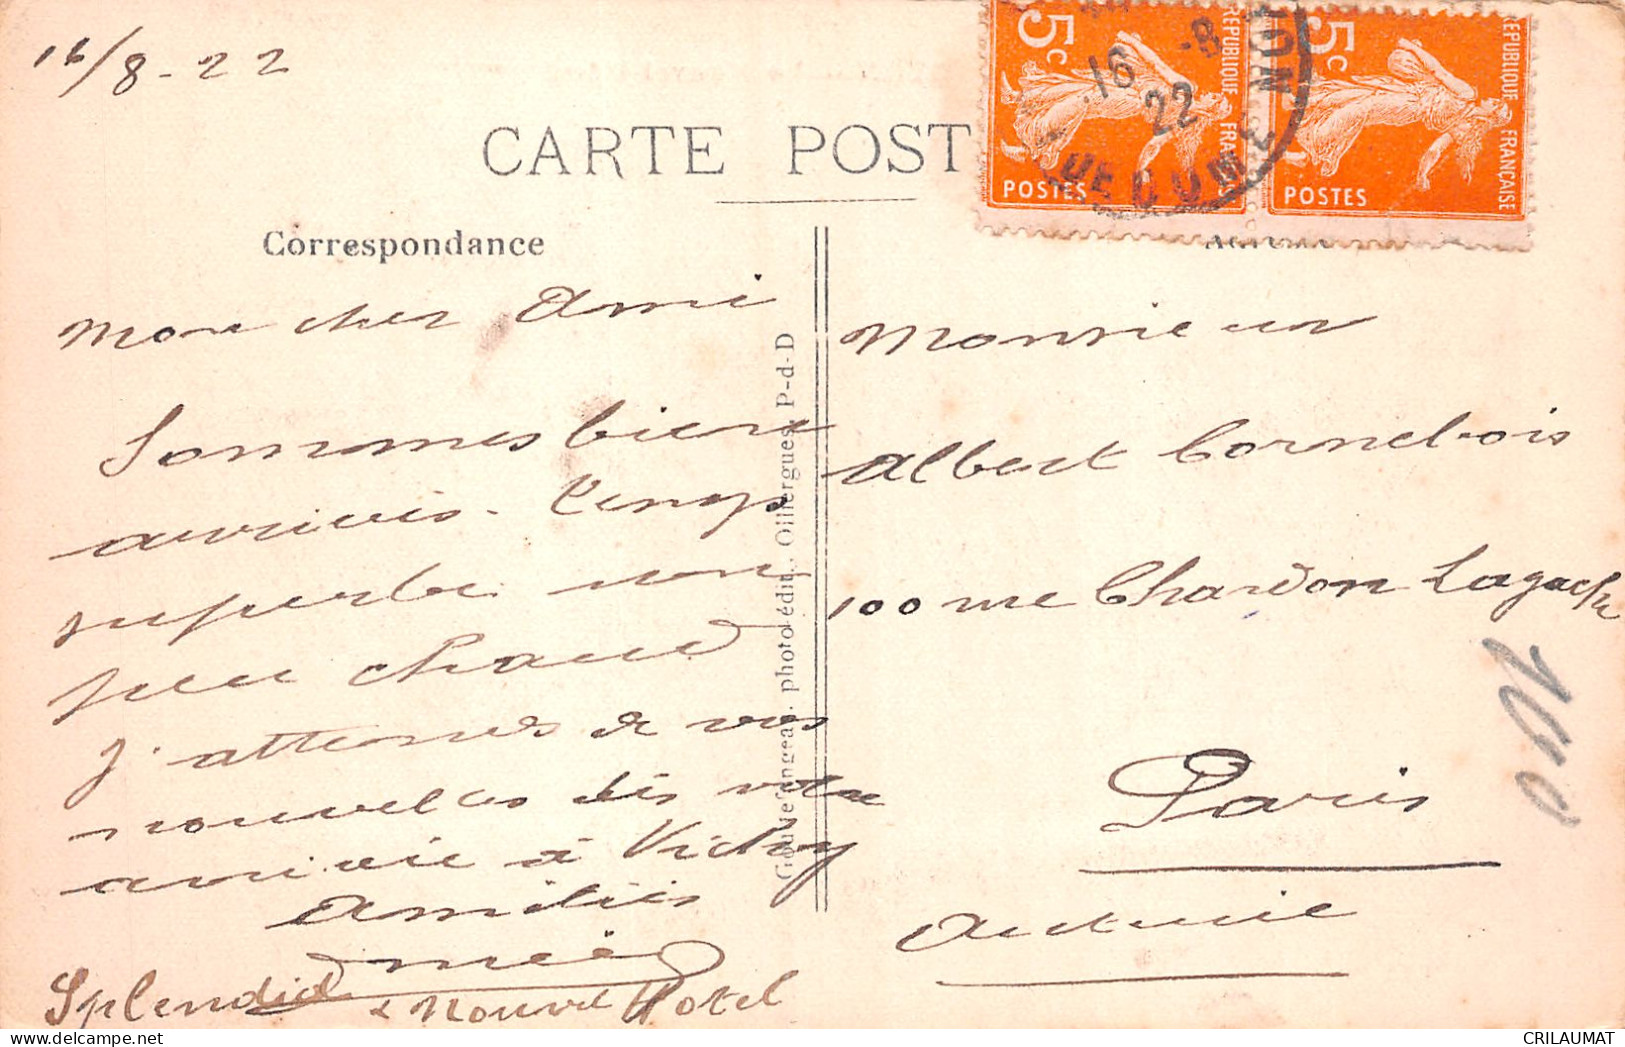 16/8-22
CARTE POST
5c
REPUBLIQUE FRANÇAISE
POSTES
5c
REPUBLIQUE FRANÇAISE
POSTES
16 -8
22
Correspondance
Mon cher Ami
Sommes bien
arrivés. Temps
superbe non
peu chaud
J'attends de vos
nouvelles dès votre
arrivée à Vichy
Amitiés
Splendid & Nouvel Hotel
Goutefangeas, photo édit., Olliergues P-d-D
Monsieur
Albert Cornebois
100 rue Chardon Lagache
Paris
Auteuil
CRILAUMAT